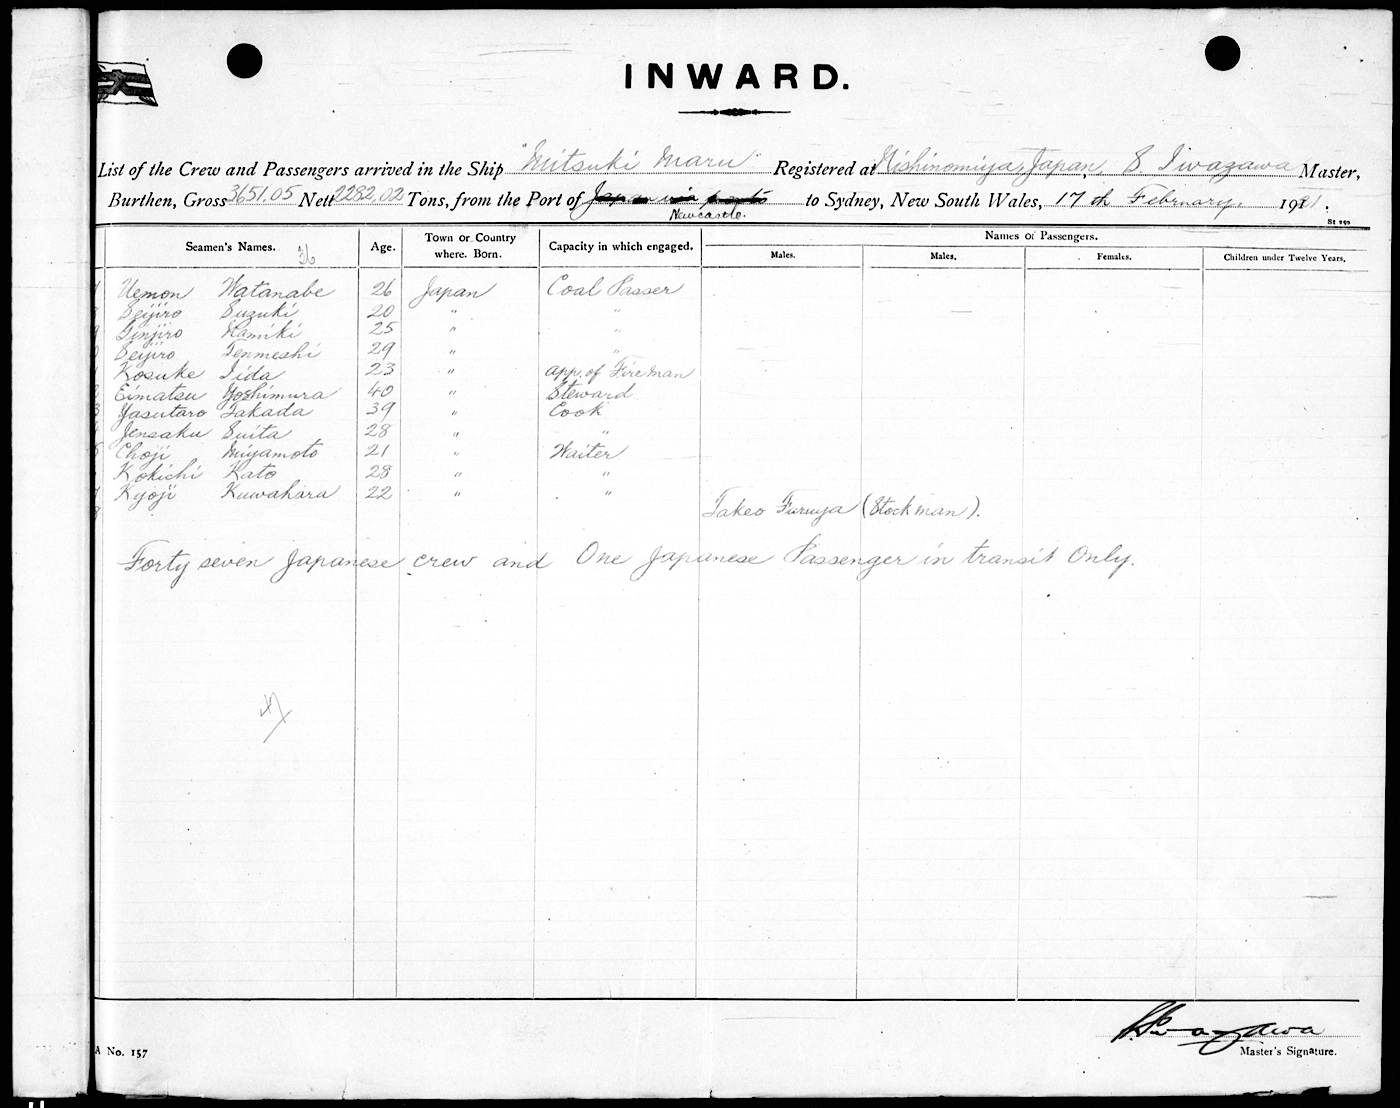 INWARD.
List of the Crew and Passengers arrived in the Ship "Mitsuki Maru" Registered at Nishinomiya, Japan, S. Iwazawa Master,
Burthen, Gross 3651.05 Nett 2282.02 Tons, from the Port of Japan via ports to Sydney, New South Wales, 17th February, 19
Newcastle.
St 292
Seamen's Names. Age. Town or Country where. Born. Capacity in which engaged. Names of Passengers.
36 Males. Males. Females. Children under Twelve Years.
Uemon Watanabe 26 Japan Coal Passer
Seijiro Suzuki 20 " "
Ginjiro Kamiki 25 " "
Seijiro Tenmeshi 29 " "
Kosuke Iida 23 " app. of Fireman
Eimatsu Yoshimura 40 " Steward
Yasutaro Takada 39 " Cook
Jensaku Suita 28 " "
Choji Miyamoto 21 " Waiter
Kokichi Kato 28 " "
Kyoji Kuwahara 22 " "
Takeo Furuya (Stockman).
Forty seven Japanese crew and One Japanese Passenger in transit Only.
47
S. Iwazawa
Master's Signature.
A No. 157